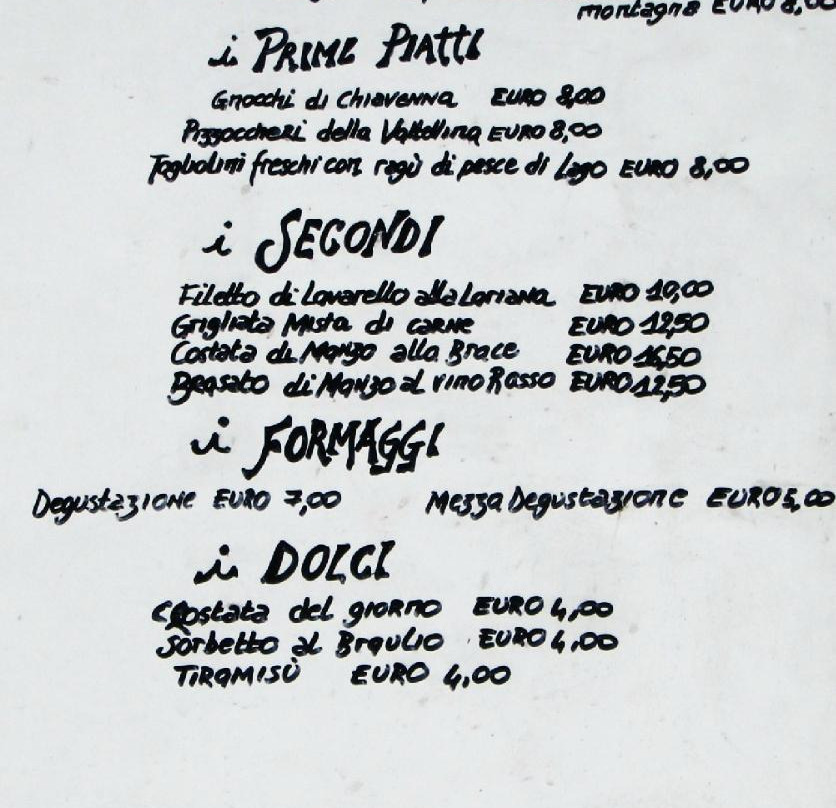 montagna EURO 8,00
i PRIMI PIATTI
Gnocchi di Chiavenna EURO 8,00
Pizzoccheri della Valtellina EURO 8,00
Tagliolini freschi con ragù di pesce di Lago EURO 8,00
i SECONDI
Filetto di Lavarello alla Lariana EURO 10,00
Grigliata Mista di carne EURO 12,50
Costata di Manzo alla Brace EURO 16,50
Brasato di Manzo al vino Rosso EURO 12,50
i FORMAGGI
Degustazione EURO 7,00 Mezza Degustazione EURO 5,00
i DOLCI
Crostata del giorno EURO 4,00
Sorbetto al Braulio EURO 4,00
TIRAMISÙ EURO 4,00